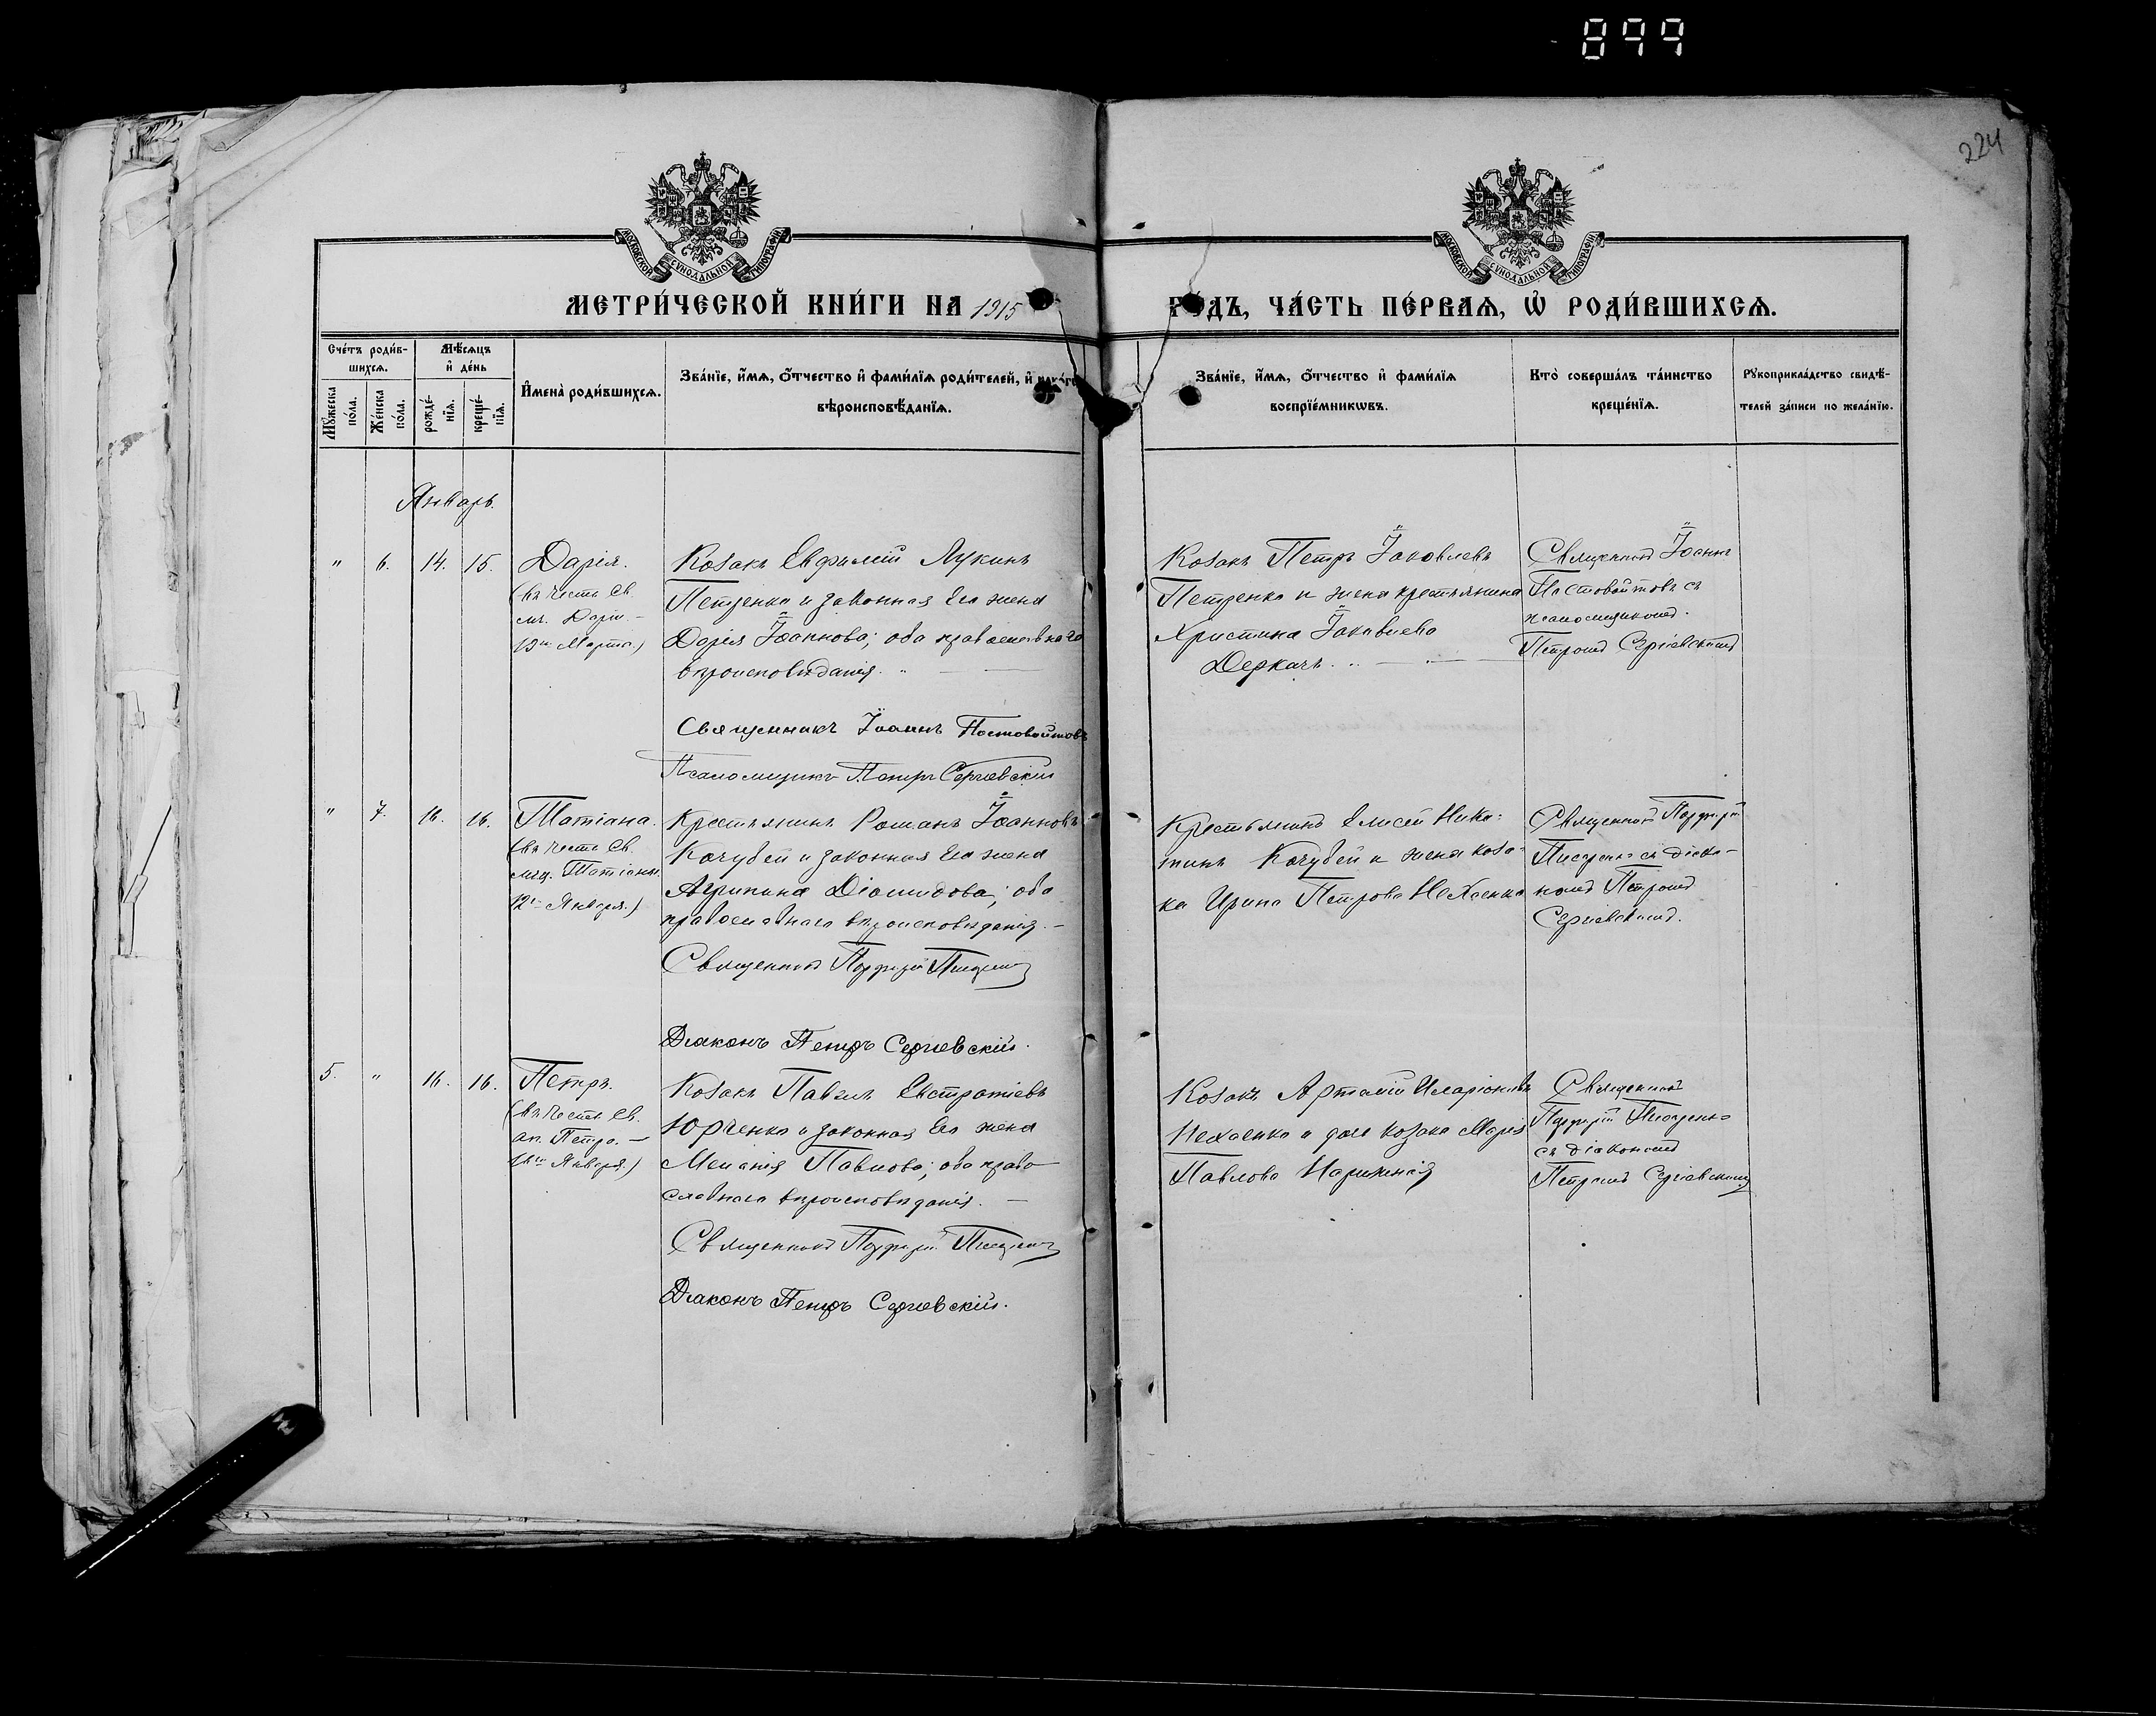 899
224
МОСКОВСКОЙ СѴНОДАЛЬНОЙ ТИПОГРАФІИ
МОСКОВСКОЙ СѴНОДАЛЬНОЙ ТИПОГРАФІИ
МЕТРИ́ЧЕСКОЙ КНИ́ГИ НА 1915
ГО́ДЪ, ЧА́СТЬ ПЕ́РВАѦ, Ѽ РОДИ́ВШИХСѦ.
Сче́тъ роди́в-
шихсѧ.
Мꙋ́жеска по́ла.
Же́нска по́ла.
Мѣ́сѧцъ
и҆ де́нь
рожде́-
нїѧ.
креще́-
нїѧ.
И҆мена̀ роди́вшихсѧ.
Зва́нїе, и҆́мѧ, ѻ҆́тчество и҆ фами́лїѧ роди́телей, и҆ како́гѡ
вѣроисповѣ́данїѧ.
Зва́нїе, и҆́мѧ, ѻ҆́тчество и҆ фами́лїѧ
воспрїе́мникѡвъ.
Кто̀ соверша́лъ та́инство
креще́нїѧ.
Рꙋкоприкла́дство свидѣ́-
телей за́писи по жела́нїю.
Январь.
" 6. 14. 15. Дарія.
(въ честь Св.
мч. Дарiи –
19го Марта.)
Козакъ Евфимій Лукинъ
Петренко и законная его жена
Дарія Іоаннова; оба православнаго
вѣроисповѣданія.
Священникъ Іоаннъ Постовойтовъ
Псаломщикъ Петръ Сергіевскій
Козакъ Петръ Іаковлевъ
Петренко и жена крестьянина
Христина Іаковлева
Деркачъ.
Священникъ Іоаннъ
Постовойтовъ съ
псаломщикомъ
Петромъ Сергіевскимъ
" 7. 16. 16. Татіана.
(въ честь Св.
мц. Татіаны
12го Января.)
Крестьянинъ Романъ Іоанновъ
Кочубей и законная его жена
Агрипина Діомидова; оба
православнаго вѣроисповѣданія. –
Священникъ Порфирій
Діаконъ Петръ Сергіевскій.
Крестьянинъ Елисей Ники-
тинъ Кочубей и жена коза-
ка Ирина Петрова Нехаенко
Священникъ Порфирій
съ діако-
номъ Петромъ
Сергіевскимъ.
5. " 16. 16. Петръ.
(въ честь Св.
ап. Петра. –
16го Января.)
Козакъ Павелъ Евстратіевъ
Юрченко и законная его жена
Меланія Павлова; оба право-
славнаго вѣроисповѣданія. –
Священникъ Порфирій
Діаконъ Петръ Сергіевскій.
Козакъ Артемій Иларіоновъ
Нехаенко и дочь козака Марія
Павлова Нарижная
Священникъ
Порфирій
съ діакономъ
Петромъ Сергіевскимъ